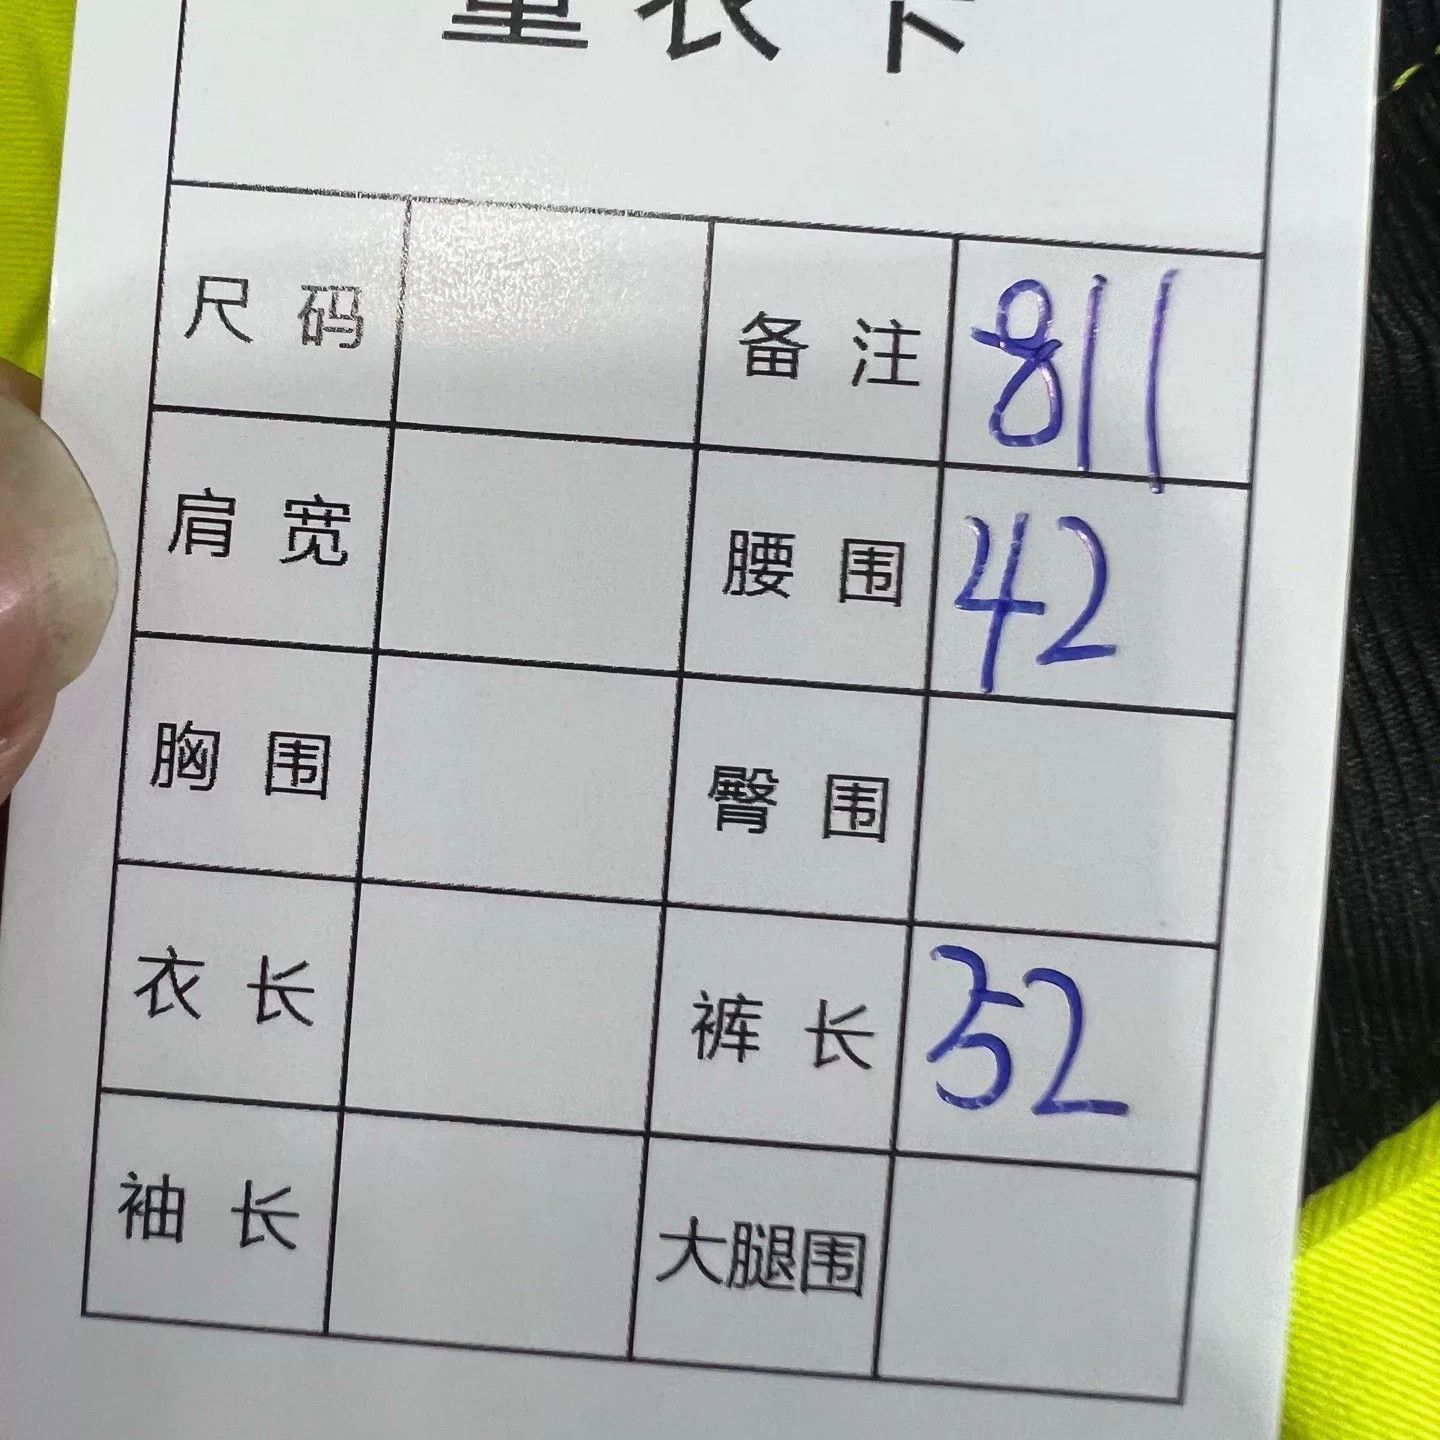 量衣卡
尺码 备注 811
肩宽 腰围 42
胸围 臀围
衣长 裤长 52
袖长 大腿围